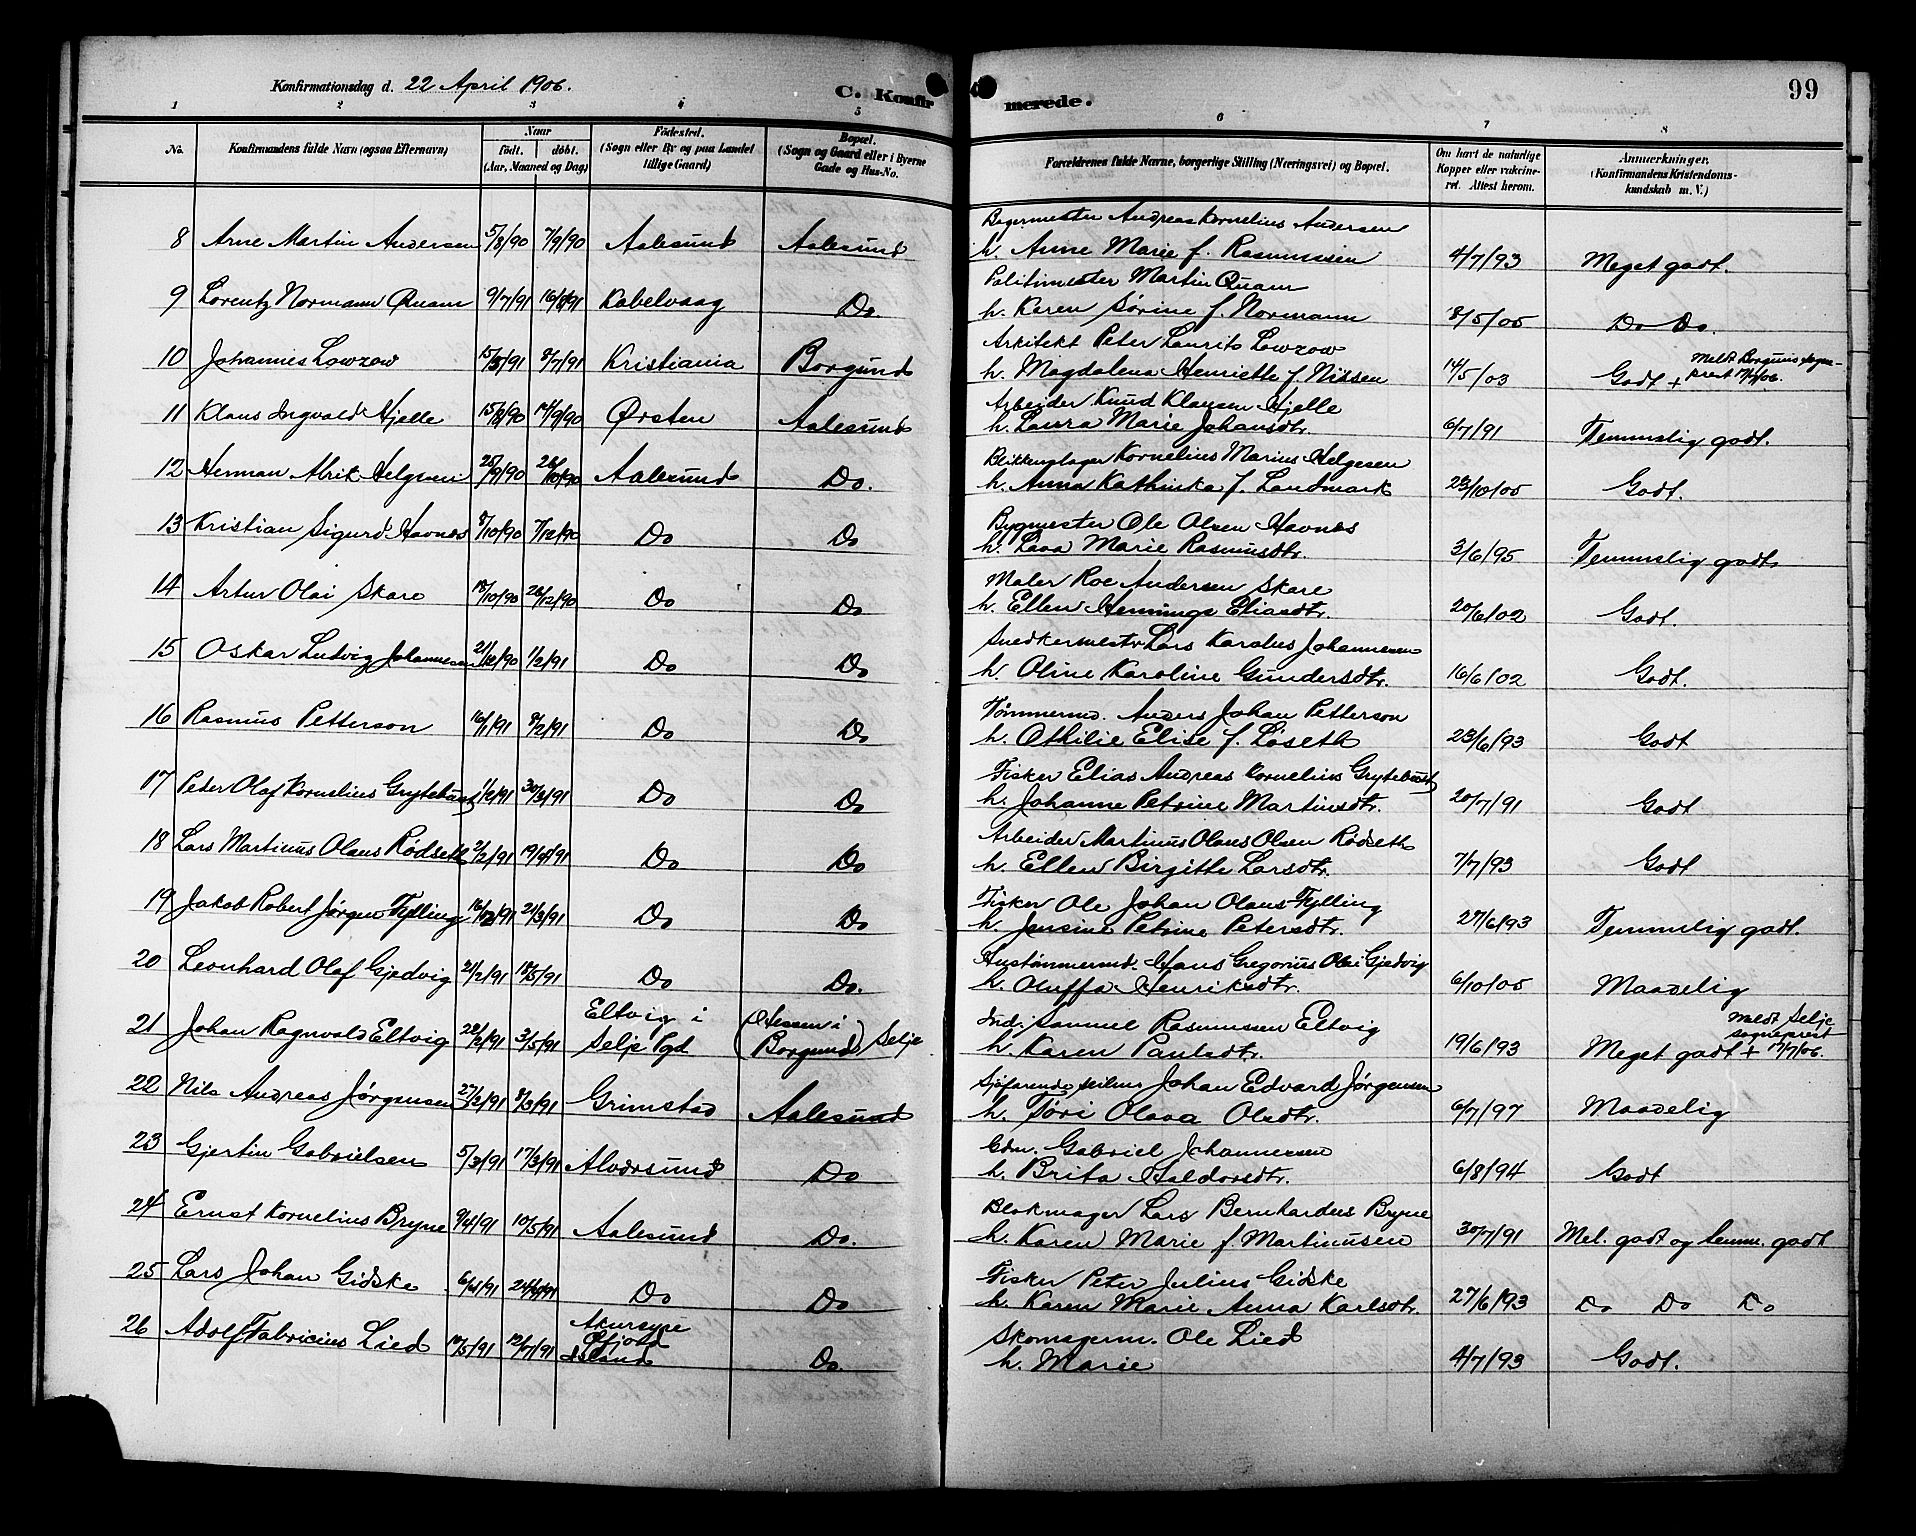 Konfirmationsdag d. 22 April 1906.
C. Konfirmerede.
99
1 2 3 4 5 6 7 8
No.
Konfirmandens fulde Navn (ogsaa Efternavn)
Naar
født. døbt.
(Aar, Maaned og Dag)
Fødested.
(Sogn eller By og paa Landet
tillige Gaard)
Bopæl.
(Sogn og Gaard eller i Byerne
Gade og Hus-No.
Forældrenes fulde Navne, borgerlige Stilling (Næringsvei) og Bopæl.
Om havt de naturlige
Kopper eller vakcine-
ret. Attest herom.
Anmærkninger.
(Konfirmandens Kristendoms-
kundskab m. V.)
Bagermester Andreas Kornelius Andersen
8 Arne Martin Andersen 5/8/90 7/9/90 Aalesund Aalesund h. Anne Marie f. Rasmussen 4/7/93 Meget godt.
Politimester Martin Quam
9 Lorentz Normann Quam 9/7/91 16/8/91 Kabelvaag Do. h. Karen Sørine f. Normann 8/5/05 Do Do.
Arkitekt Peter Laurits Lowzow
10 Johannes Lowzow 8/7/91 Kristiania Borgund h. Magdalena Henriette f. Nissen 14/5/03 Godt + Meldt Borgunds sogneprest
Arbeider Knud Klausen Hjelle
11 Klaus Ingvald Hjelle 15/8/90 14/9/90 Ørsten Aalesund h. Laura Marie Johansdtr. 6/7/91 Temmelig godt.
Blikkenslager Kornelius Marius Helgesen
12 Herman Alrik Helgesen 25/9/90 26/10/90 Aalesund Do. h. Anna Kathinka f. Landmark 23/10/05 Godt.
Bygmester Ole Olsen Havnes
13 Kristian Sigurd Havnes 8/10/90 7/12/90 Do Do h. Lava Marie Rasmusdtr. 3/6/95 Temmelig godt
Maler Roe Andersen Skare
14 Artur Olai Skare 18/10/90 26/12/90 Do Do h. Ellen Hennings Eliasdtr. 20/6/02 Godt.
Snedkermestr Lars Karolus Johannesen
15 Oskar Ludvig Johannesen 21/12/90 1/2/91 Do Do h. Oline Karoline Gundersdtr. 16/6/02 Godt.
Tømmermd. Anders Johan Petterson
16 Rasmus Petterson 16/1/91 8/2/91 Do Do h. Othilie Elise f. Løseth 23/6/93 Godt
Fisker Elias Andreas Kornelius Grytebust
17 Peder Olaf Kornelius Grytebust 1/2/91 30/3/91 Do Do h. Johanne Petrine Martinsdtr. 20/7/91 Godt
Arbeider Martinus Olaus Olsen Rødseth
18 Lars Martinus Olaus Rødseth 2/2/91 19/4/91 Do Do h. Ellen Birgitte Larsdtr. 7/7/93 Godt
Fisker Ole Johan Olaus Fylling
19 Jakob Robert Jørgen Fylling 21/3/91 Do Do h. Jensine Petrine Petersdtr. 27/6/93 Temmelig godt
Hustømmermd. Hans Gregorius Olai Gjedvig
20 Leonhard Olaf Gjedvig 21/2/91 18/5/91 Do Do. h. Oluffa Henriksdtr. 6/10/05 Maadelig
Ind. Samuel Rasmussen Eltvig
21 Johan Ragnvald Eltvig 22/2/91 3/5/91 Eltvig i Selje Pgd (Hessen i Borgund) Selje h. Karen Paulsdtr. 19/6/93 Meget godt + Meldt Selje sogneprest 17/7/06.
Sjøfarende, Johan Edvard Jørgensen
22 Nils Andreas Jørgensen 27/2/91 8/3/91 Grimstad Aalesund h. Tøri Olava Olsdtr. 6/7/97 Maadelig
Gdm. Gabriel Johannesen
23 Gjertin Gabrielsen 5/3/91 17/3/91 Alversund Do h. Brita Haldorsdtr. 6/8/94 Godt
Blokmager Lars Bernhardus Bryne
24 Ernst Kornelius Bryne 9/4/91 10/5/91 Aalesund Do. h. Karen Marie f Martinusen 30/7/91 Mel. godt og temm. godt
Fisker Peter Julius Gidske
25 Lars Johan Gidske 6/4/91 Do Do h. Karen Marie Anna Karlsdtr. 27/6/93 Do Do Do
Skomagerm. Ole Lied
26 Adolf Fabricius Lied 19/5/91 12/7/91 Akureyre Øfjord Island Do. h. Marie 4/7/93 Godt.